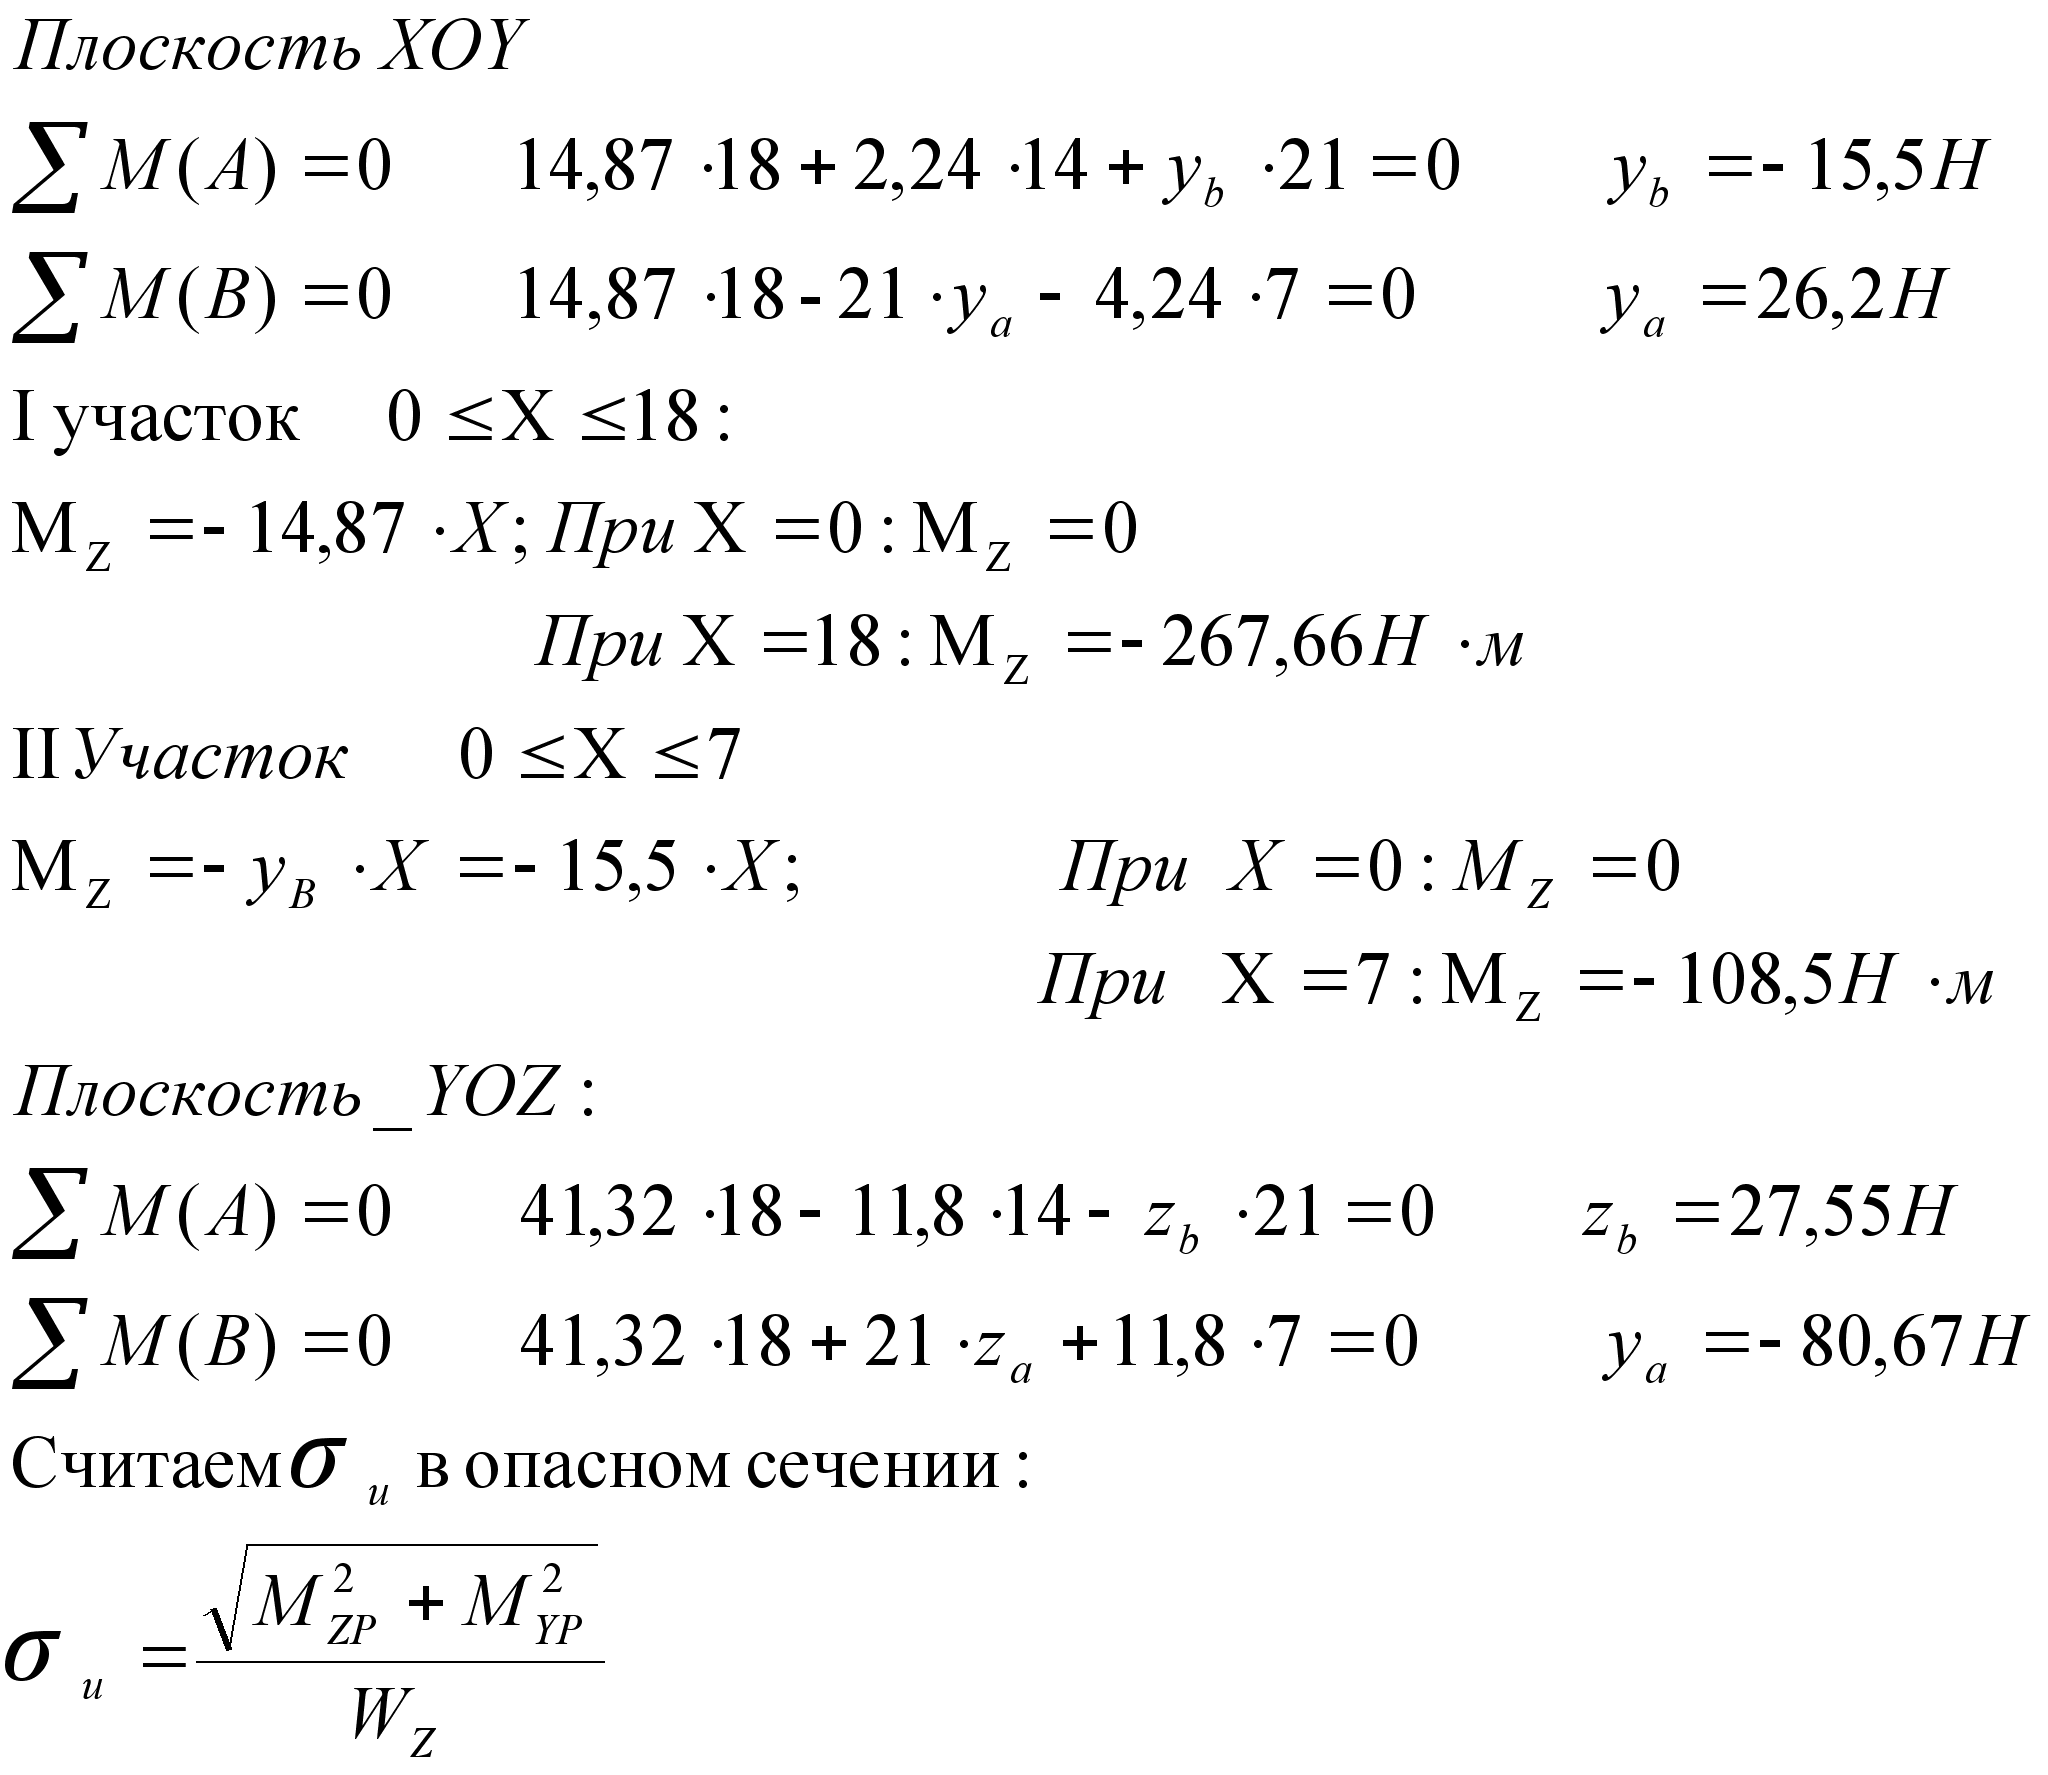 Плоскость XOY
∑ M(A) = 0 14,87 · 18 + 2,24 · 14 + y_b · 21 = 0 y_b = - 15,5 Н
∑ M(B) = 0 14,87 · 18 - 21 · y_a - 4,24 · 7 = 0 y_a = 26,2 Н
I участок 0 ≤ X ≤ 18 :
M_Z = - 14,87 · X; При X = 0 : M_Z = 0
При X = 18 : M_Z = - 267,66 Н · м
II Участок 0 ≤ X ≤ 7
M_Z = - y_B · X = - 15,5 · X; При X = 0 : M_Z = 0
При X = 7 : M_Z = - 108,5 Н · м
Плоскость _ YOZ :
∑ M(A) = 0 41,32 · 18 - 11,8 · 14 - z_b · 21 = 0 z_b = 27,55 Н
∑ M(B) = 0 41,32 · 18 + 21 · z_a + 11,8 · 7 = 0 y_a = - 80,67 Н
Считаем σ_и в опасном сечении :
σ_и = √(M_ZP^2 + M_YP^2) / W_Z